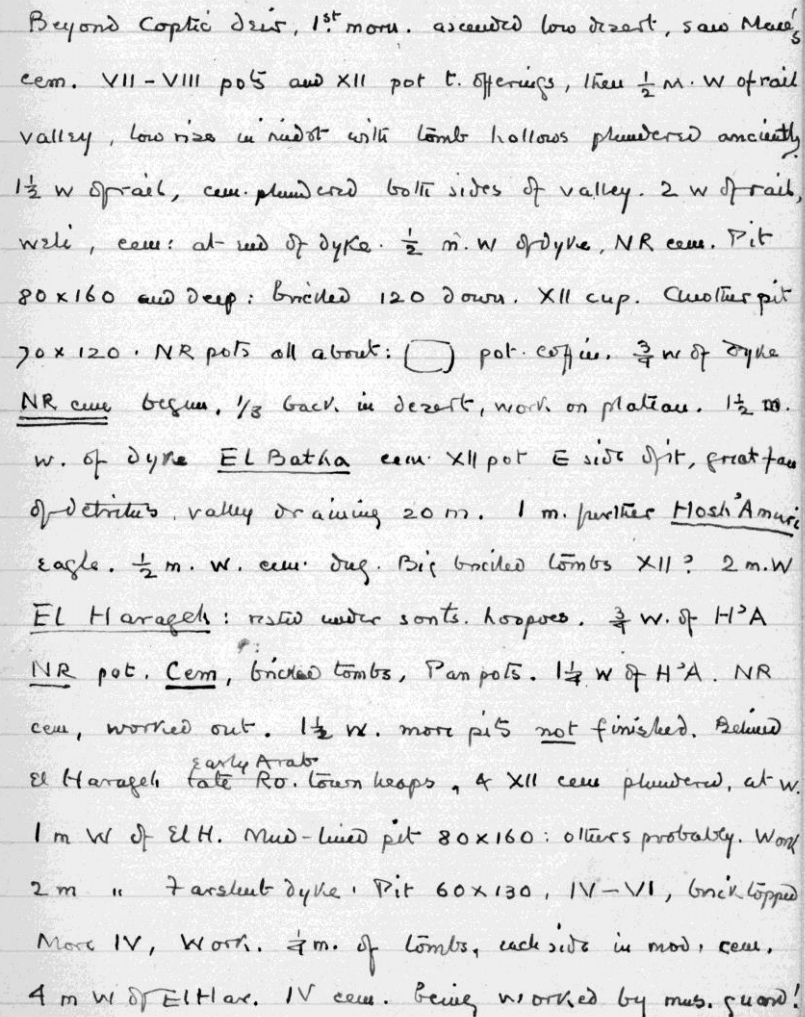 Beyond Coptic deir, 1st morn. ascended low desert, saw Mace's
cem. VII - VIII pots and XII pot t. offerings, then ½ m. W of rail
valley, low rise in midst with tomb hollows plundered anciently,
1½ W of rail, cem. plundered both sides of valley. 2 W of rail,
weli, cem: at end of dyke. ½ m. W of dyke, NR cem. Pit
80 x 160 and deep: bricked 120 down. XII cup. Another pit
70 x 120. NR pots all about: pot. coffin. ¾ W of dyke
NR cem begun, 1/3 back in desert, work on plateau. 1½ m.
W. of dyke El Batha cem. XII pot E side of it, great fan
of detritus, valley draining 20 m. 1 m. further Hosh 'Amuri
Eagle. ½ m. W. cem. dug. Big bricked tombs XII? 2 m. W
El Harageh: rested under sonts. hoopoes. ¾ W. of H'A
NR pot. Cem, bricked tombs, Pan pots. 1¼ W of H'A. NR
cem, worked out. 1½ W. more pits not finished. Behind
Early Arab
El Harageh late Ro. town heaps, & XII cem plundered, at W.
1 m W of El H. Mud-lined pit 80 x 160: others probably. Work
2 m " Farshut dyke. Pit 60 x 130, IV-VI, brick topped
More IV, Work. ¼ m. of tombs, each side in mod. cem.
4 m W of El Har. IV cem. being worked by mus. guard!